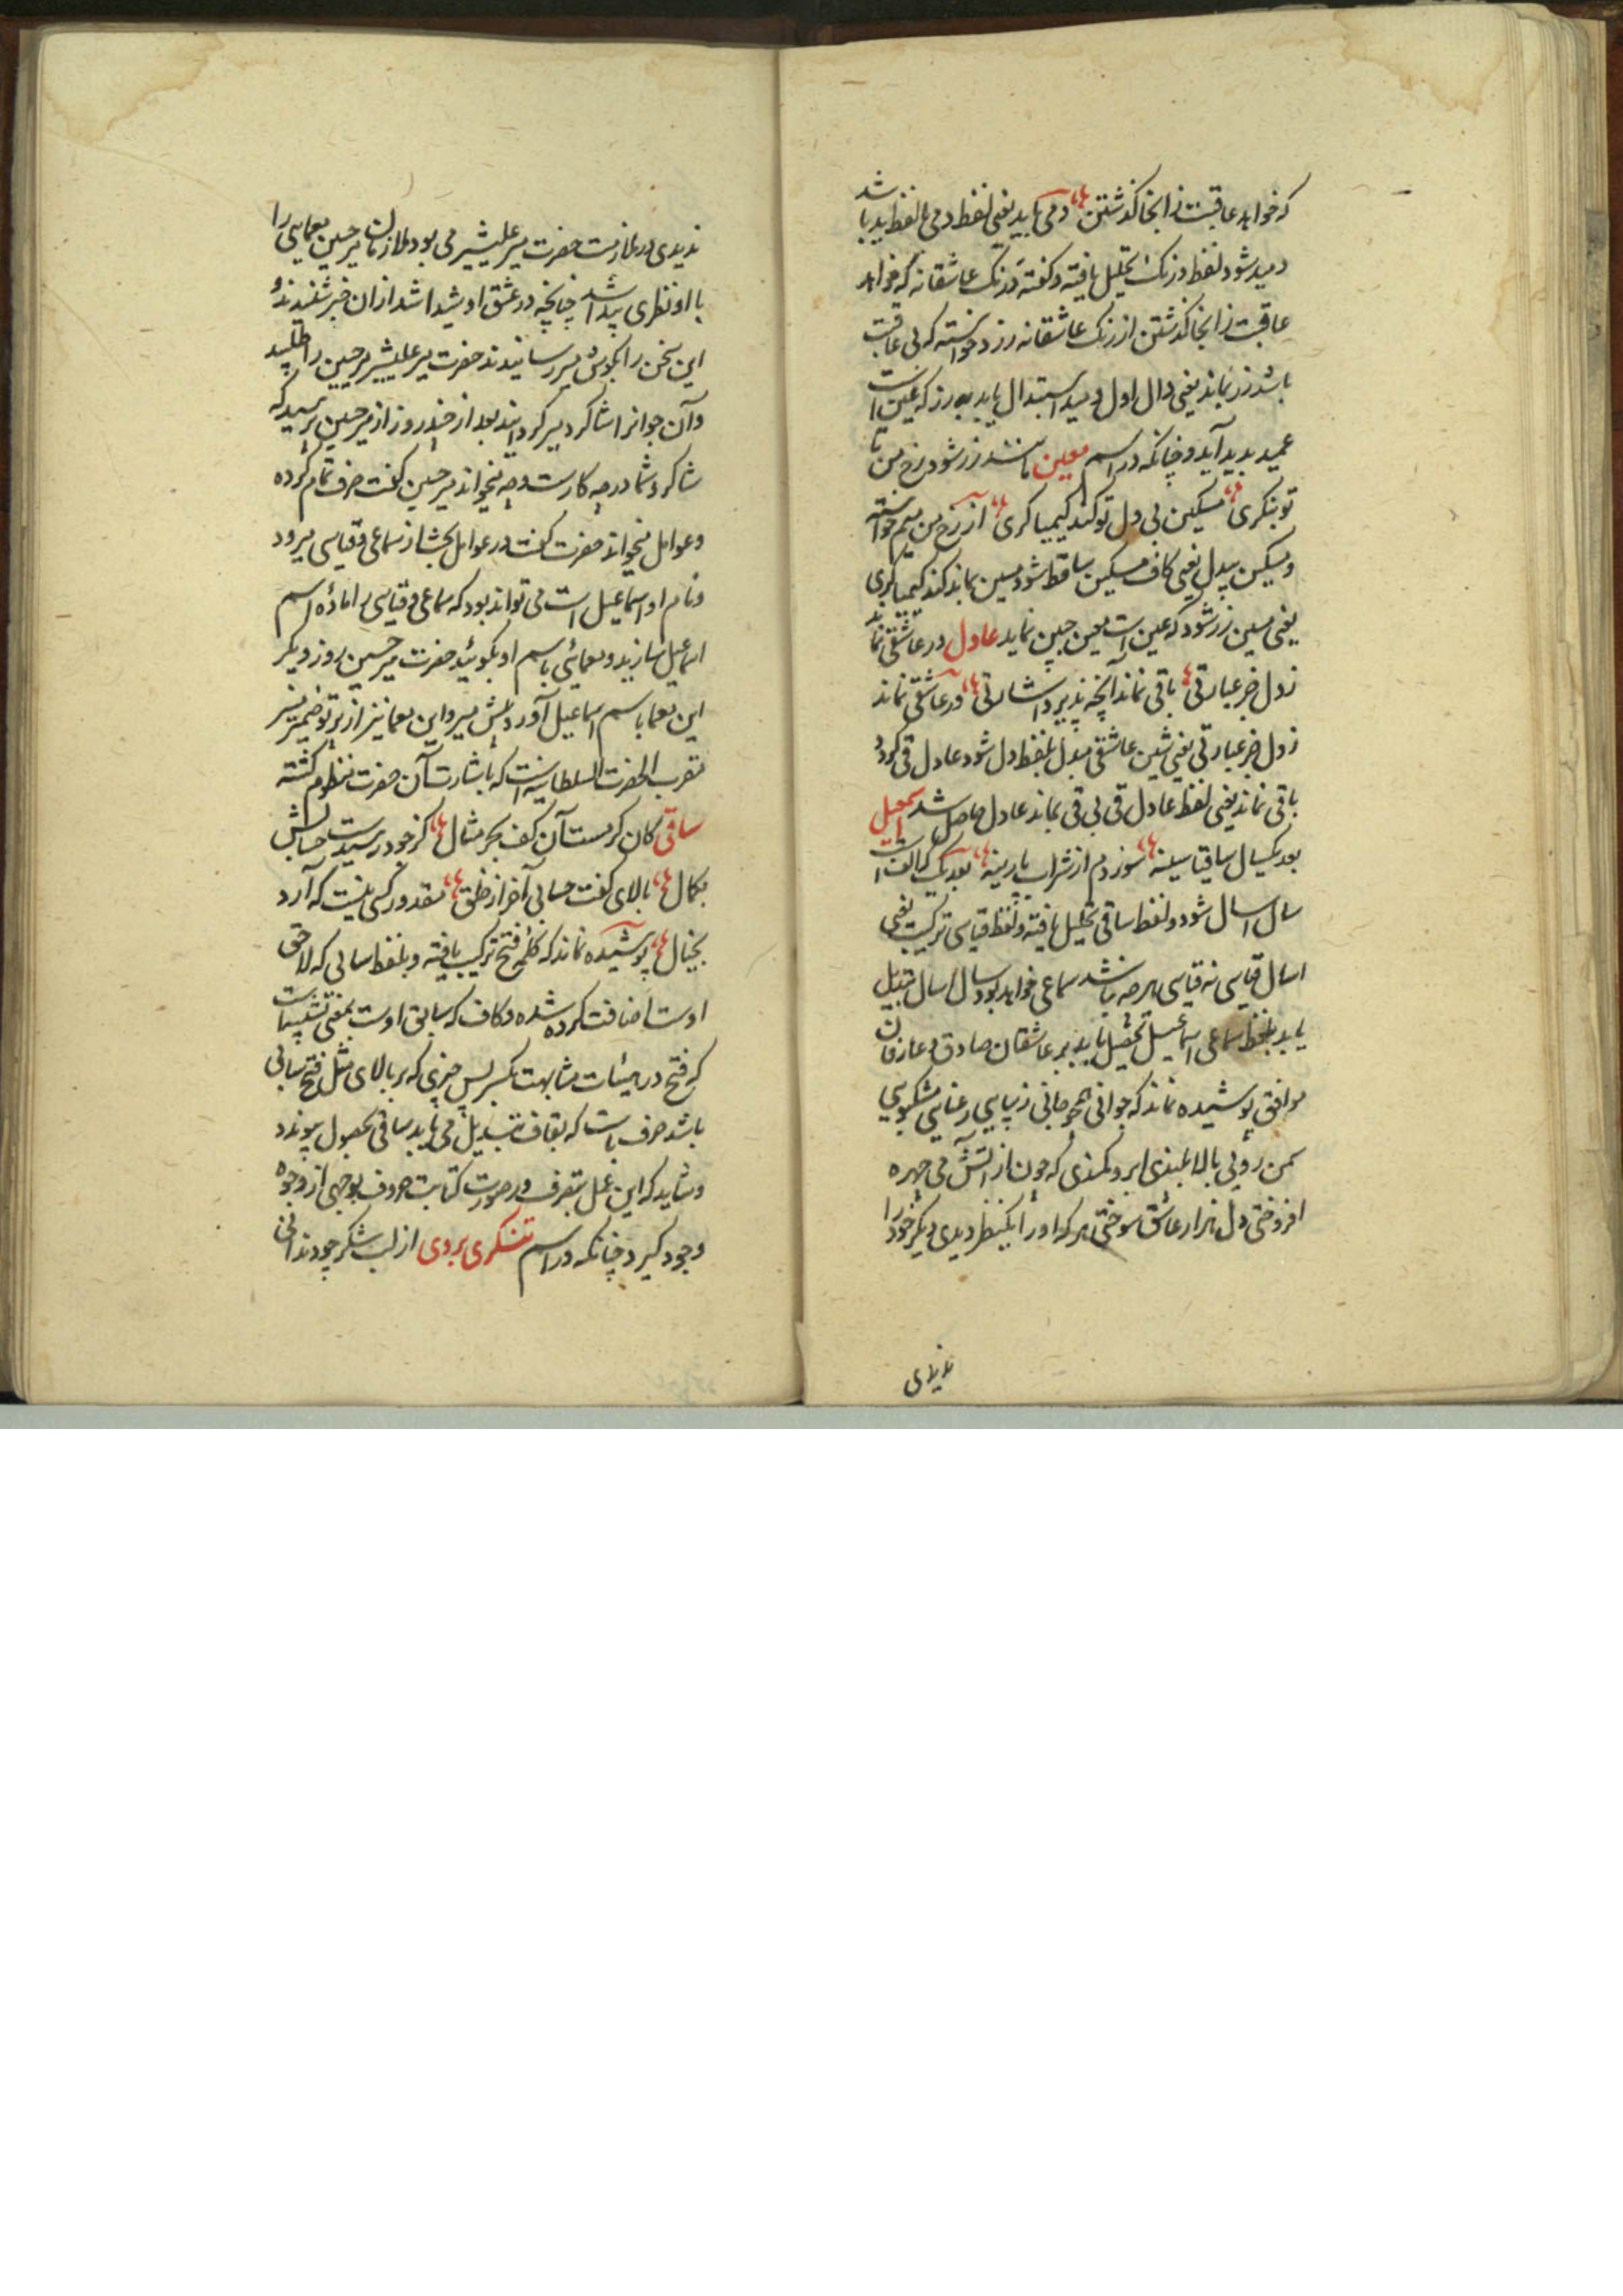 که خواهد عاقبت زانجا گذشتن دمی باید یعنی لفظ دمی بالفظ ید باشد
دمید شود لفظ درنک تحلیل یافته و گفته و رنک عاشقانه که خواهد
عاقبت زانجا گذشتن از رنک عاشقانه رزد خواسته که بی عاقبت
باشد رز بماند یعنی دال اول دمید استبدال یابد به رز که عین است
عمید بدید آید و چنانکه در اسم معین باشد زر شود رخ من تا
تو بنگری مسکین بی دل تو کند کیمیا گری از رخ من میم خواسته
و مسکین بیدل یعنی کاف مسکین ساقط شود مسین بماند کند کیمیا گری
یعنی مسین زر شود که عین است معین جبین نماید عادل در عاشقی نماند
ز دل خبر عبارتی باقی نماند آنچه پذیرد اشارتی در عاشقی نماند
ز دل خبر عبارتی یعنی شین عاشقی مبدل بلفظ دل شود عادل قی کردد
باقی نماند یعنی لفظ عادل قی بی قی بماند عادل حاصل شد اسمعیل
بعد یکسال ساقیا سینه سوزدم از شراب پارینه بعد یک که الفست
سال اسال شود و لفظ ساقی تحلیل یافته و لفظ قیاسی ترکیب یعنی
اسال قیاسی نه قیاسی هر چه باشد سماعی خواهد بود سال اسال تبدیل
یابد بلفظ سماعی اسماعیل تحصیل یابد بر عاشقان صادق و عارفان
موافق پوشیده نماند که جوانی همچو جانی زیبایی رعنایی مشکبویی
سمن رویی بالا بلندی ابرو کمندی که چون از آتش می چهره
افروختی دل هزار عاشق سوختی هر که او را یکنظر دیدی دیگر خود را
ندیدی
ندیدی در ملازمت حضرت میر علیشیر می بود ملازمان میر حسین معمایی را
با او نظری پیدا شد چنانچه در عشق او شیدا شد ازان خبر شنیدند و
این سخن را بگوش میر رسانیدند حضرت میر علیشیر میر حسین را طلبید
و آن جوانرا شاگرد میر گردانید بعد از چند روز از میر حسین پرسید که
شاگرد شما در چه کارست و چه میخواند میر حسین گفت صرف تمام کرده
و عوامل میخواند حضرت گفت در عوامل بحث از سماعی و قیاسی میرود
و نام او اسماعیل است می تواند بود که سماعی و قیاسی را ماده اسم
اسماعیل سازید و معمائی باسم او بگوئید حضرت میر حسین روز دیگر
این معما باسم اسماعیل آورد پیش میر و این معما نیز از پرتو ضمیر منیر
مقرب الحضرت السلطانیه است که باشارت آن حضرت منظوم گشته
ساقی کان کرمست آن کف بحر مثال کز جود رسیدست حسابش
بکمال بالای کفت حسابی آخر از خلق مقدور کسی نیست که آرد
بخیال پوشیده نماند که کلمه فتح ترکیب یافته و بلفظ سابی که لاحق
اوست اضافت کرده شده و کاف که سابق اوست بمعنی تشبیهست
که فتح در هیئات مشابهت بکسر پس چیزی که بر بالای مثل فتح سابی
باشد حرف باست که بقاف تبدیل می یابد ساقی بحصول پیوندد
و شاید که این عمل بتصرف در صورت کتابت حروف بوجهی از وجوه
وجود گیرد چنانکه در اسم تنکری بردی از لب شکر چو دندانی